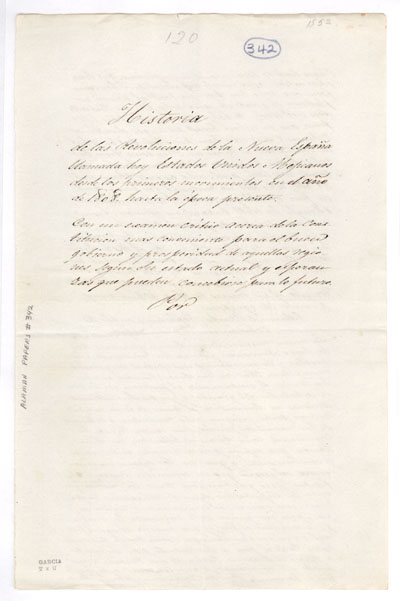 120
342
Historia
de las Revoluciones de la Nueva España
llamada hoy Estados Unidos Mejicanos
desde los primeros movimientos en el año
de 1808. hasta la época presente.
Con un examen critico acerca de la Cons
titucion mas conveniente para el buen
gobierno y prosperidad de aquellas regio
nes segun su estado actual y esperan
zas que pueden concebirse para lo futuro.
Por
ALAMAN PAPERS # 342
GARCIA